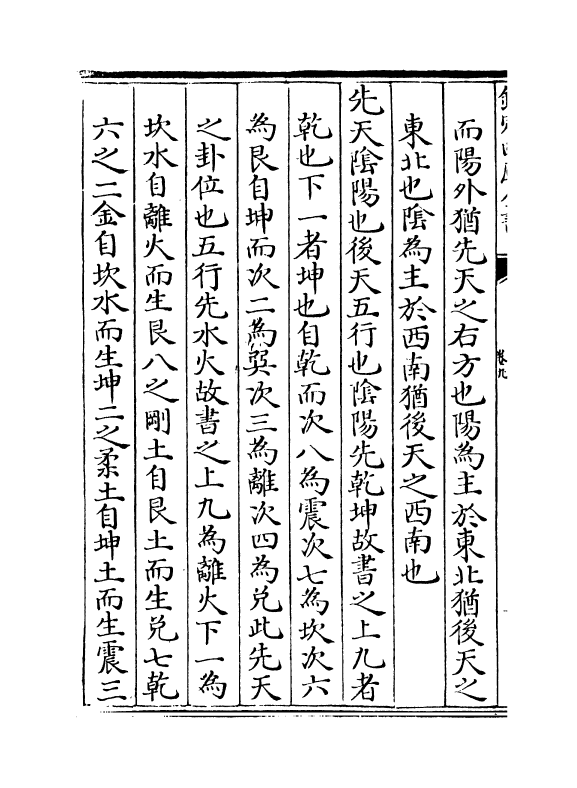 而陽外猶先天之右方也陽為主於東北猶後天之
東北也陰為主於西南猶後天之西南也
先天陰陽也後天五行也陰陽先乾坤故書之上九者
乾也下一者坤也自乾而次八為震次七為坎次六
為艮自坤而次二為巽次三為離次四為兌此先天
之卦位也五行先水火故書之上九為離火下一為
坎水自離火而生艮八之剛土自艮土而生兌七乾
六之二金自坎水而生坤二之柔土自坤土而生震三